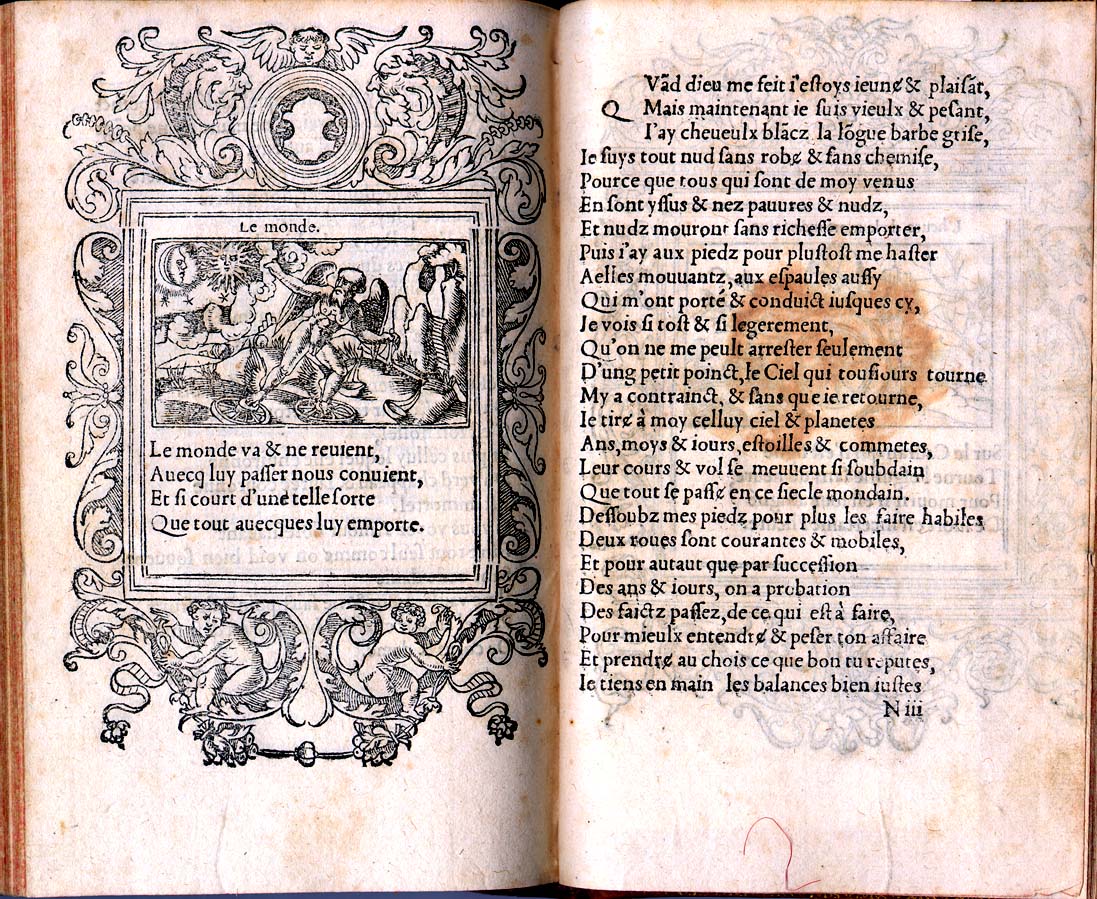 Le monde.
Le monde va & ne reuient,
Auecq luy passer nous conuient,
Et si court d'une telle sorte
Que tout auecques luy emporte.
QVãd dieu me feit i'estoys ieune & plaisãt,
Mais maintenant ie suis vieulx & pesant,
I'ay cheueulx blãcz la lõgue barbe grise,
Ie suys tout nud sans robe & sans chemise,
Pource que tous qui sont de moy venus
En sont yssus & nez pauures & nudz,
Et nudz mouront sans richesse emporter,
Puis i'ay aux piedz pour plustost me haster
Aelles mouuantz, aux espaules aussy
Qui m'ont porté & conduict iusques cy,
Ie vois si tost & si legerement,
Qu'on ne me peult arrester seulement
D'ung petit poinct, le Ciel qui tousiours tourne
My a contrainct, & sans que ie retourne,
Ie tire à moy celluy ciel & planetes
Ans, moys & iours, estoilles & commetes,
Leur cours & vol se meuuent si soubdain
Que tout se passe en ce siecle mondain.
Dessoubz mes piedz pour plus les faire habiles
Deux roues sont courantes & mobiles,
Et pour autaut que par succession
Des ans & iours, on a probation
Des faictz passez, de ce qui est à faire,
Pour mieulx entendre & peser ton affaire
Et prendre au chois ce que bon tu reputes,
Ie tiens en main les balances bien iustes
N iii